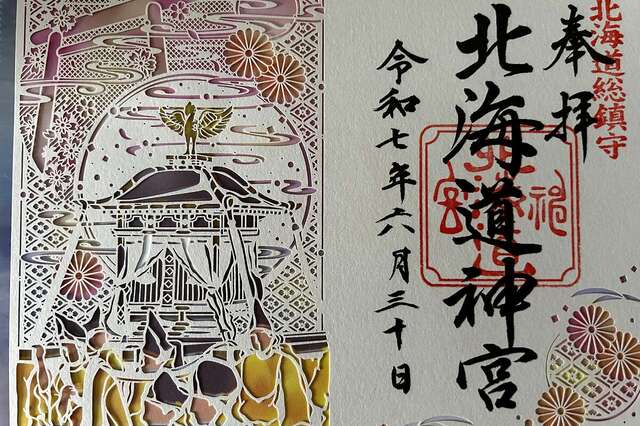 北海道総鎮守
奉拝
北海道神宮
令和七年六月三十日